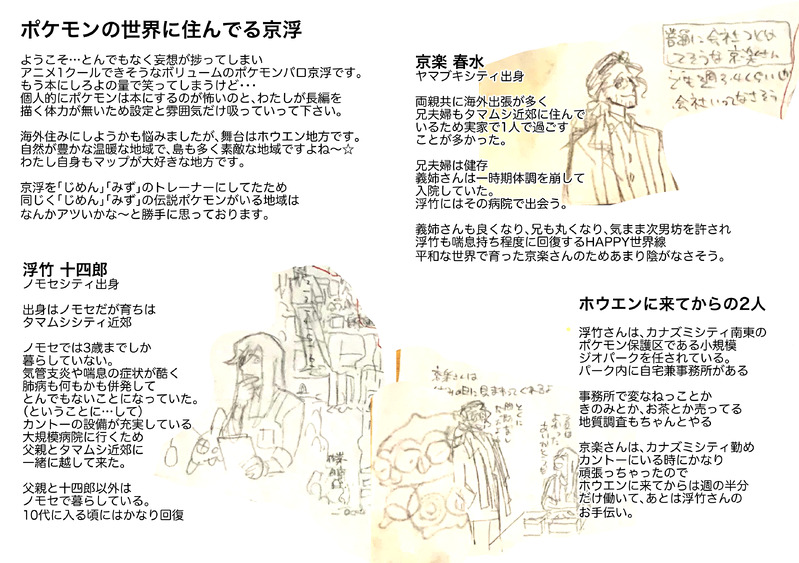 ポケモンの世界に住んでる京浮
ようこそ…とんでもなく妄想が捗ってしまい
アニメ1クールできそうなボリュームのポケモンパロ京浮です。
もう本にしろよの量で笑ってしまうけど･･･
個人的にポケモンは本にするのが怖いのと、わたしが長編を
描く体力が無いため設定と雰囲気だけ吸っていって下さい。
海外住みにしようかも悩みましたが、舞台はホウエン地方です。
自然が豊かな温暖な地域で、島も多く素敵な地域ですよね〜☆
わたし自身もマップが大好きな地方です。
京浮を｢じめん｣｢みず｣のトレーナーにしてたため
同じく｢じめん｣｢みず｣の伝説ポケモンがいる地域は
なんかアツいかな〜と勝手に思っております。
京楽 春水
ヤマブキシティ出身
両親共に海外出張が多く
兄夫婦もタマムシ近郊に住んで
いるため実家で1人で過ごす
ことが多かった。
兄夫婦は健存
義姉さんは一時期体調を崩して
入院していた。
浮竹にはその病院で出会う。
義姉さんも良くなり、兄も丸くなり、気まま次男坊を許され
浮竹も喘息持ち程度に回復するHAPPY世界線
平和な世界で育った京楽さんのためあまり陰がなさそう。
普通に会社つとめ
してそうな京楽さん
でも週3、4くらいしか
会社いってなさそう
浮竹 十四郎
ノモセシティ出身
出身はノモセだが育ちは
タマムシシティ近郊
ノモセでは3歳までしか
暮らしていない。
気管支炎や喘息の症状が酷く
肺病も何もかも併発して
とんでもないことになっていた。
(ということに…して)
カントーの設備が充実している
大規模病院に行くため
父親とタマムシ近郊に
一緒に越して来た。
父親と十四郎以外は
ノモセで暮らしている。
10代に入る頃にはかなり回復
京楽さんは
ホウエンに来てからの2人
浮竹さんは、カナズミシティ南東の
ポケモン保護区である小規模
ジオパークを任されている。
パーク内に自宅兼事務所がある
事務所で変なねっことか
きのみとか、お茶とか売ってる
地質調査もちゃんとやる
京楽さんは、カナズミシティ勤め
カントーにいる時にかなり
頑張っちゃったので
ホウエンに来てからは週の半分
だけ働いて、あとは浮竹さんの
お手伝い。